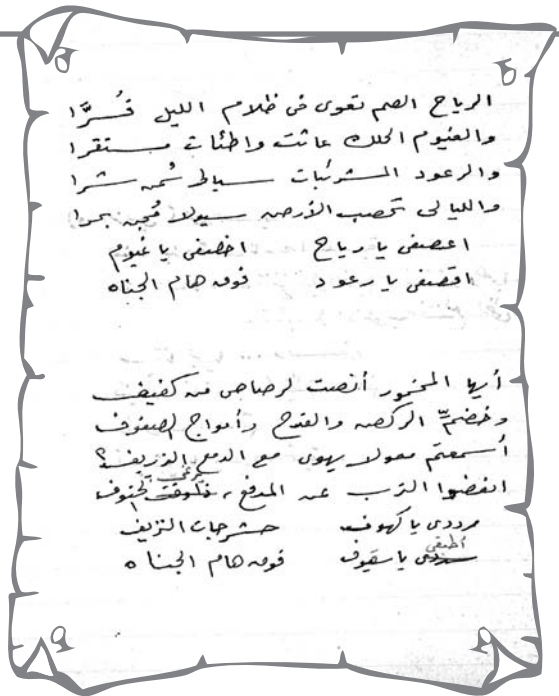 الرياح الصم تعوى فى ظلام الليل قُرَّا
والغيوم الحلك عاثت واطئات مستقرا
والرعود المشرئبات سياط شمن شرا
والليالى تحصب الأرض سيولا فجن بحرا
اعصفى يا رياح اخصفى يا غيوم
اقصفى يا رعود فوق هام الجناه
أيها المخمور أنصت لرصاص من كفيف
وخضمّ الركض والقدح وأمواج الصفوف
أسمعتم معولا يهوى مع الدمع الذريف؟
انفضوا الترب عن المدفع، الحتوف
رددى يا كهوف حشرجات النزيف
أطبقى يا سقوف فوق هام الجناه